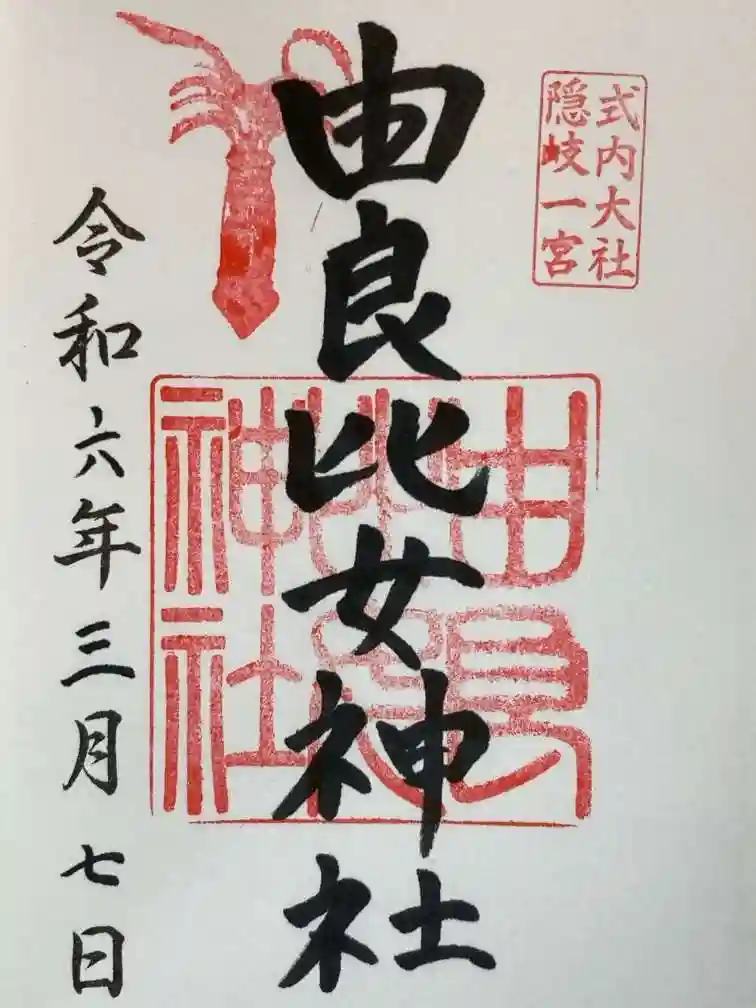 式内大社
隠岐一宮
由良比女神社
由良
比女
神社
令和六年三月七日